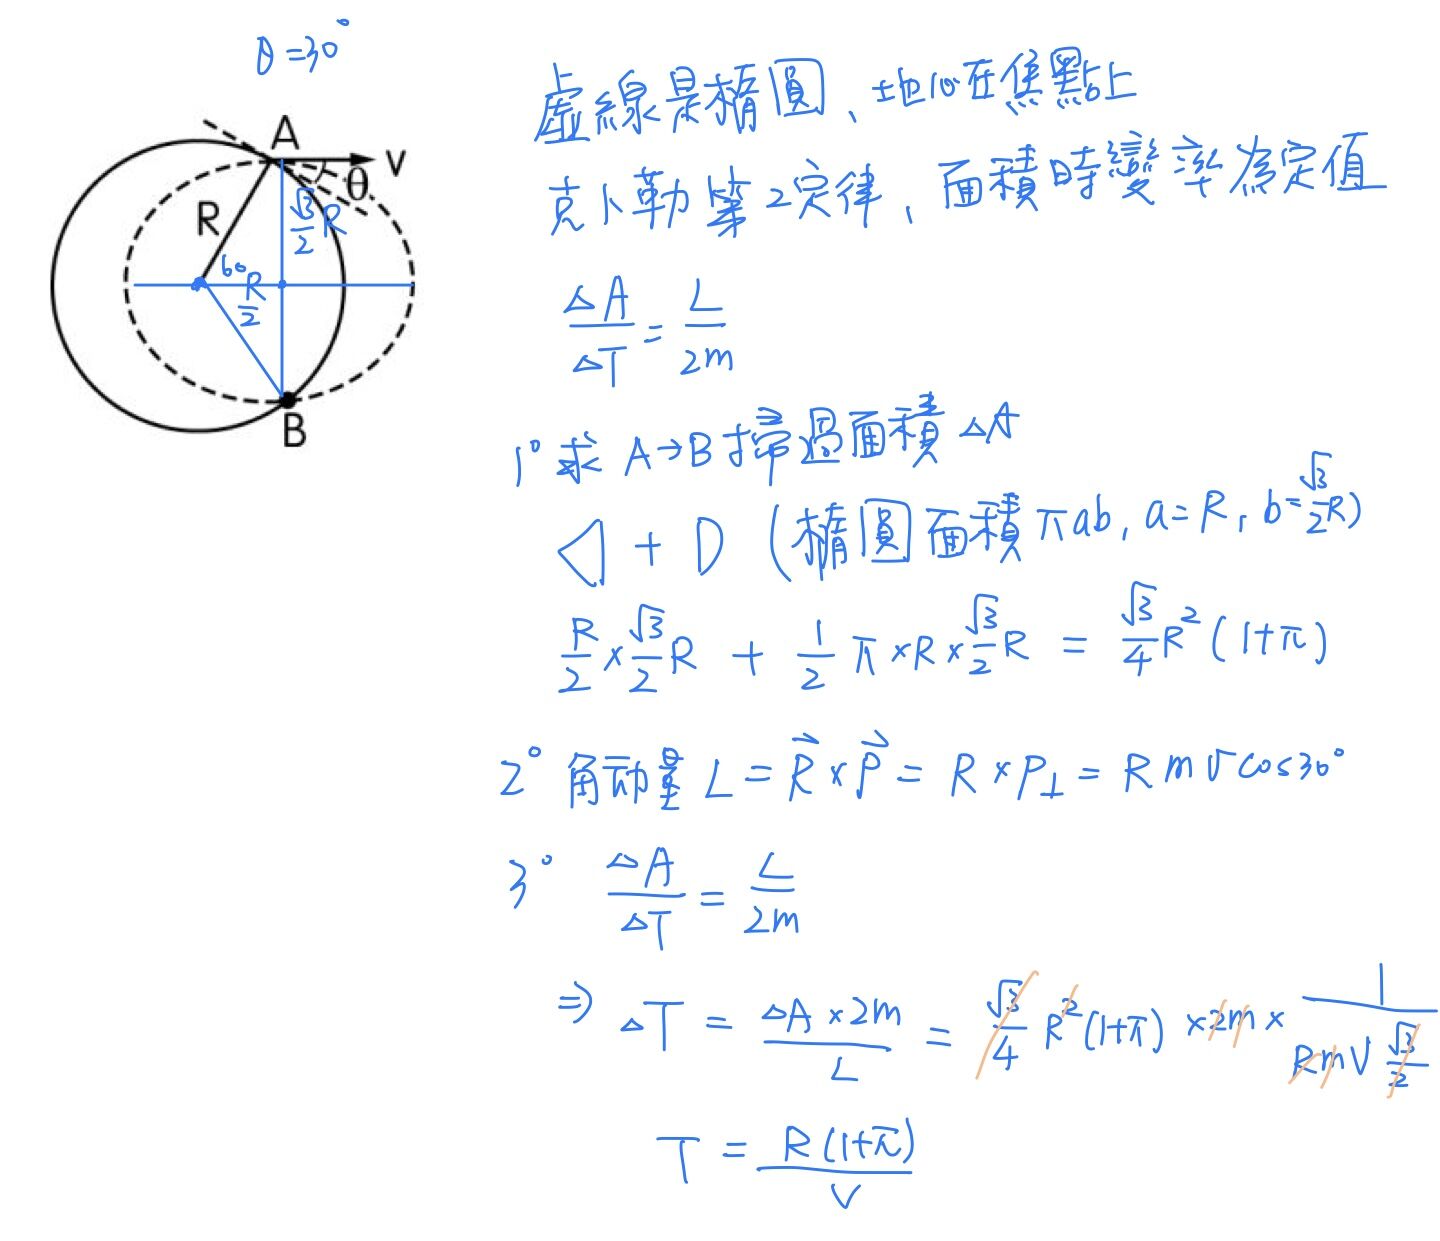 θ=30°
A
V
θ
R
√3/2 R
60
R/2
B
虛線是橢圓、地心在焦點上
克卜勒第2定律,面積時變率為定值
△A/△T = L/2m
1° 求 A→B掃過面積 △A
◁ + D (橢圓面積 πab, a=R, b=√3/2R)
R/2 × √3/2 R + 1/2 π×R×√3/2 R = √3/4 R²(1+π)
2° 角动量 L = R⃗ × P⃗ = R × P⊥ = R m v cos30°
3° △A/△T = L/2m
⇒ △T = △A×2m/L = √3/4 R²(1+π) ×2m× 1/(RmV √3/2)
T = R(1+π)/V